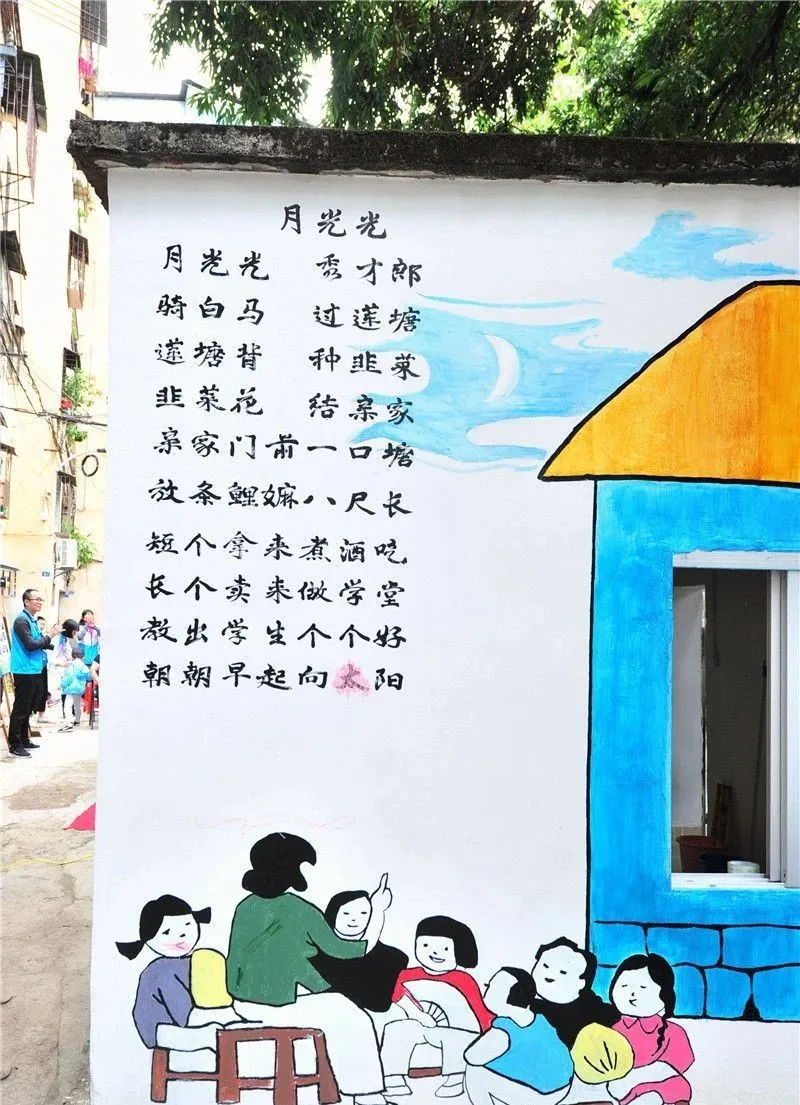 月光光
月光光 秀才郎
骑白马 过莲塘
莲塘背 种韭菜
韭菜花 结亲家
亲家门前一口塘
放条鲤嫲八尺长
短个拿来煮酒吃
长个卖来做学堂
教出学生个个好
朝朝早起向太阳